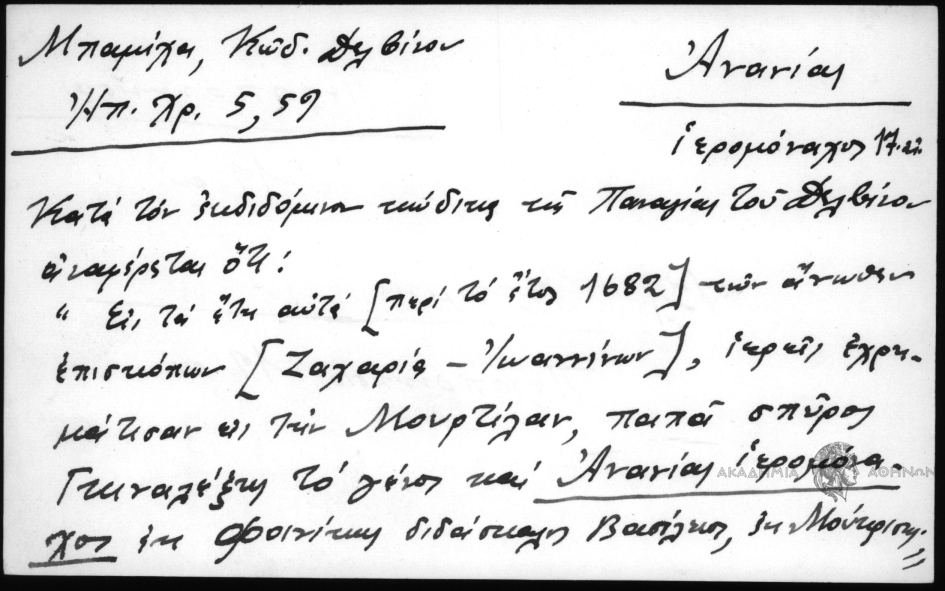 Μπαμίχα, Κώδ. Δελβίνου
Ἠπ. Χρ. 5, 59
Ἀνανίας
ἱερομόναχος 17. αἰ.
Κατά τόν ἐκδιδόμενον κώδικα τῆς Παναγίας τοῦ Δελβίνου
ἀναφέρεται ὅτι:
" Εἰς τά ἔτη αὐτά [περί τό ἔτος 1682] τῶν ἄνωθεν
ἐπισκόπων [Ζαχαρία – Ἰωαννίνων], ἱερεῖς ἐχρη-
μάτισαν εἰς τήν Μουρτίλαν, παπᾶ σπῦρος
τό γένος καί Ἀνανίας ἱερομόνα-
χος ἐκ Φοινίκης διδάσκαλος Βασίλειος, ἐκ
ΑΚΑΔΗΜΙΑ ΑΘΗΝΩΝ